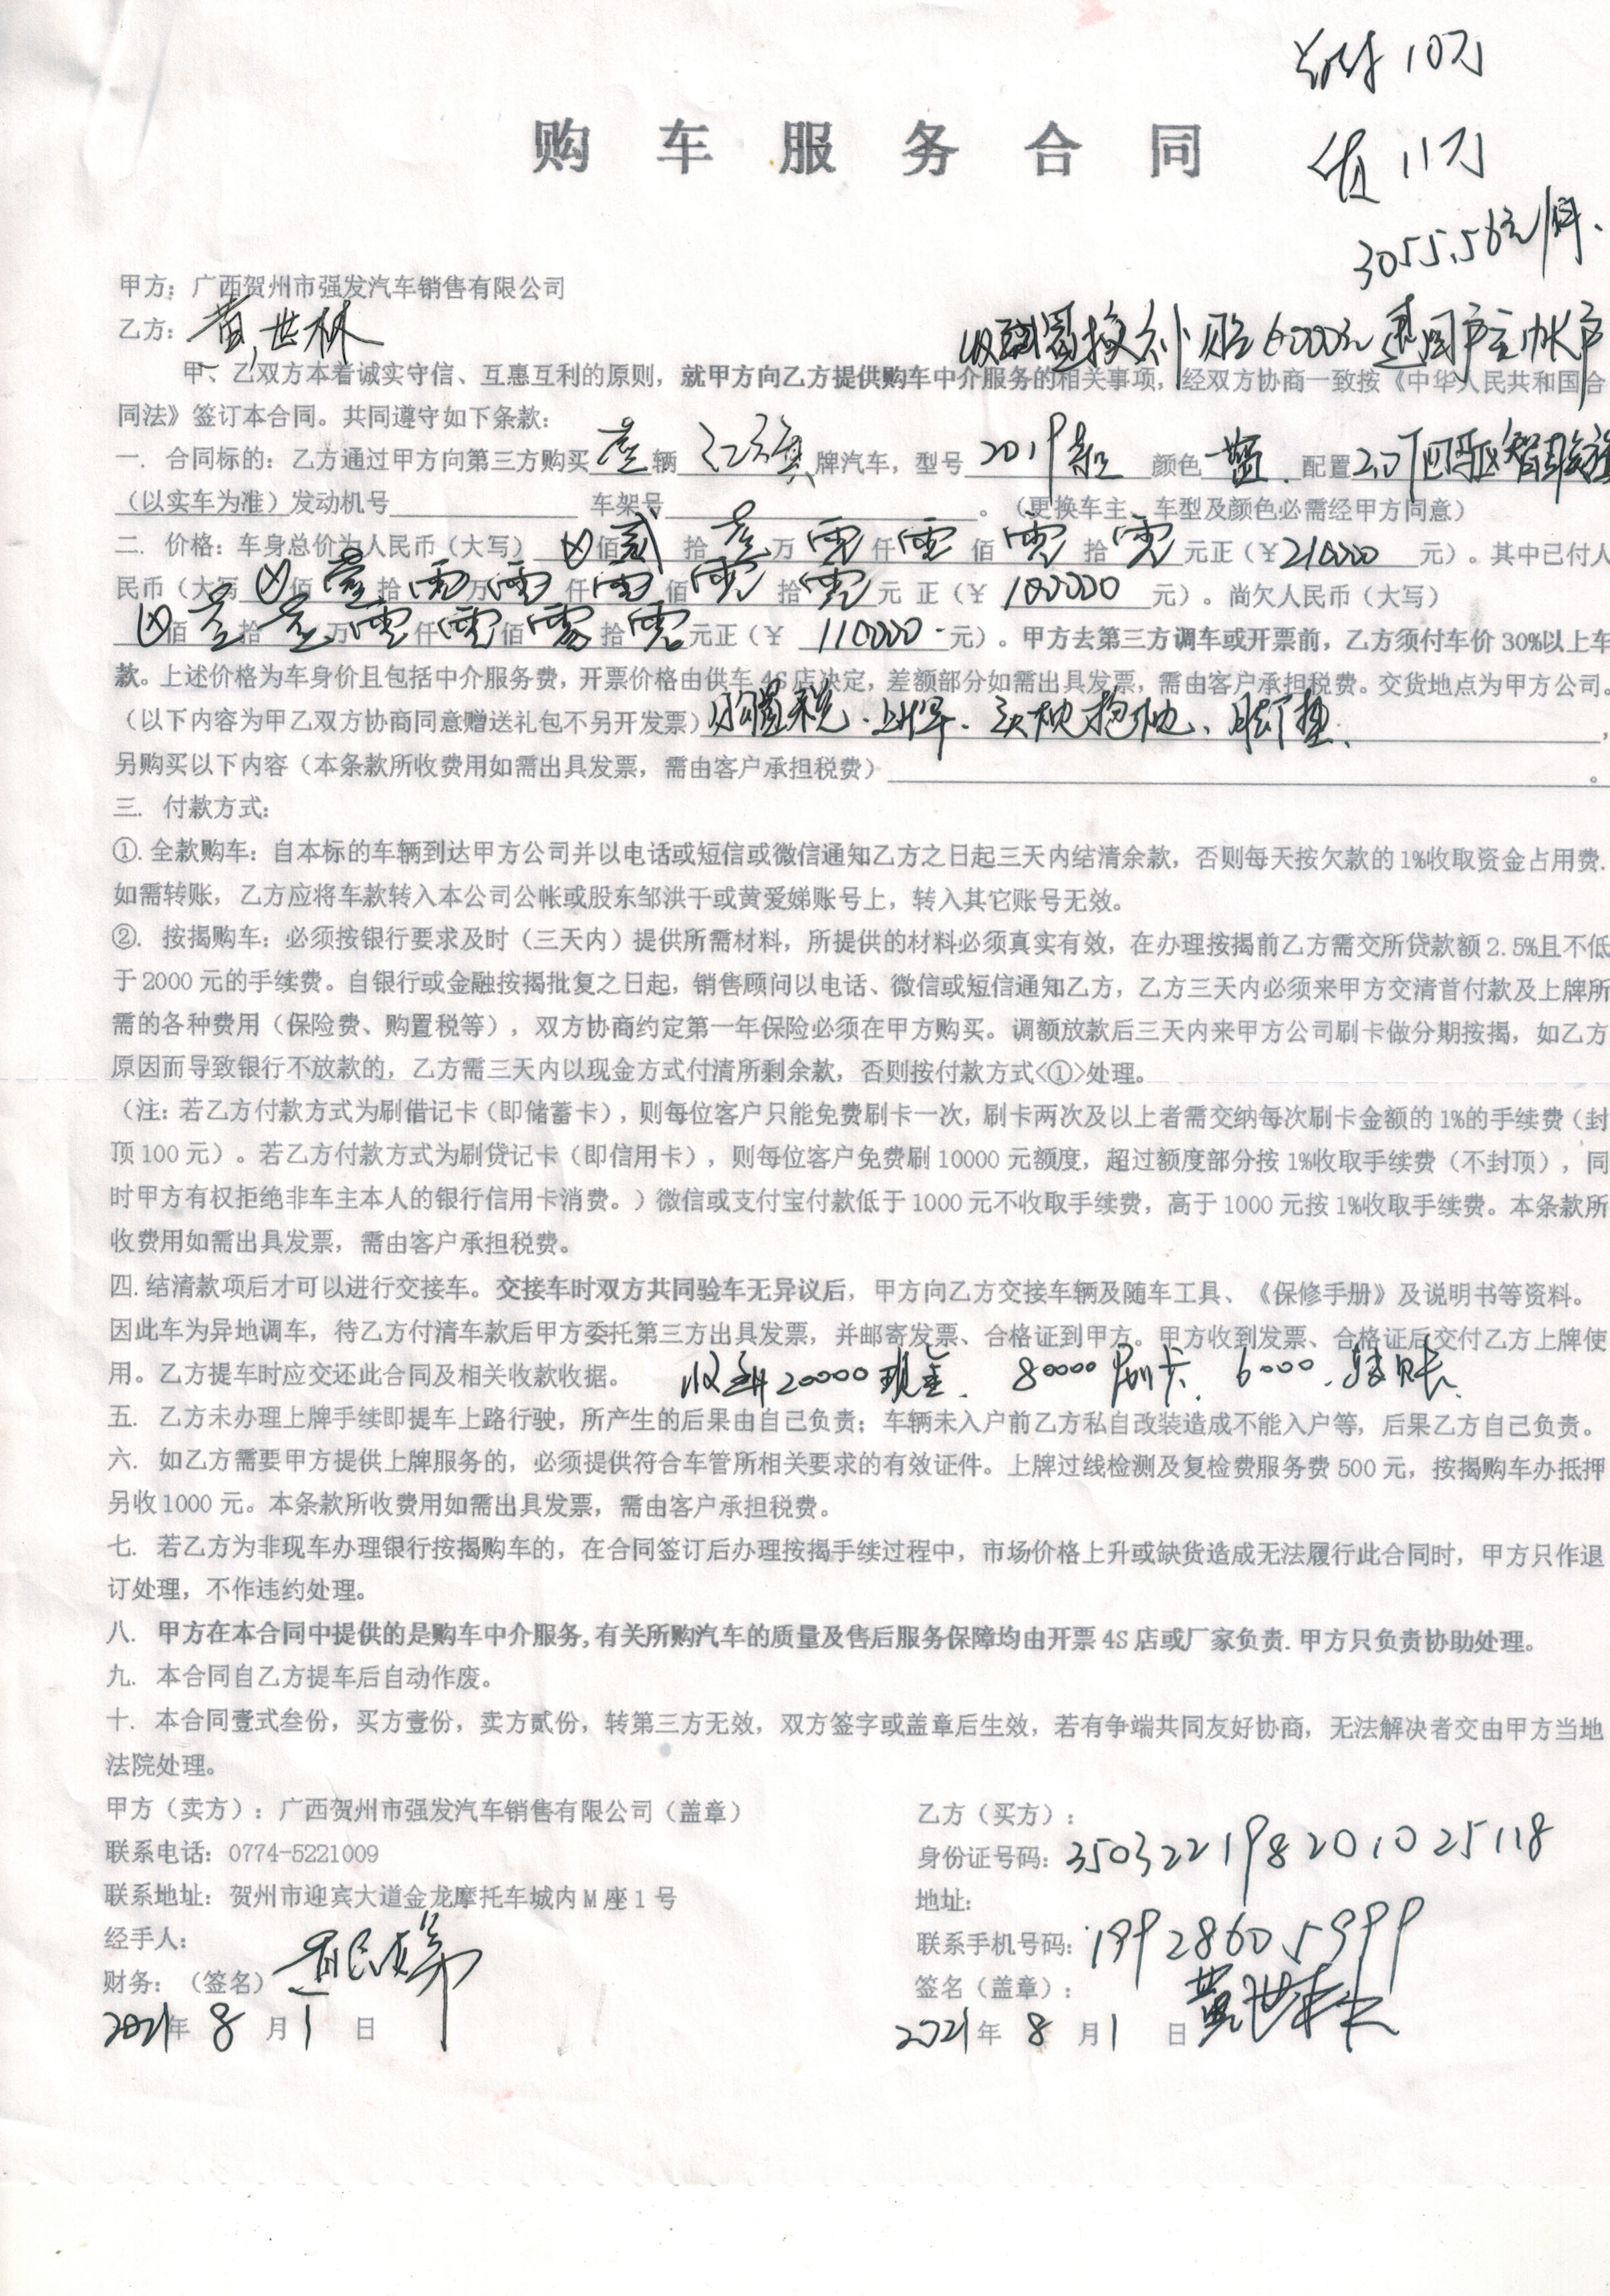 首付10万
贷11万
3055.56元/月.
购车服务合同
甲方：广西贺州市强发汽车销售有限公司
乙方：黄世林
收到置换补贴6000元退回户主帐户
甲、乙双方本着诚实守信、互惠互利的原则，就甲方向乙方提供购车中介服务的相关事项，经双方协商一致按《中华人民共和国合
同法》签订本合同。共同遵守如下条款：
一. 合同标的：乙方通过甲方向第三方购买壹辆红旗牌汽车，型号2019款 颜色 配置2.0T四驱智联旗
（以实车为准）发动机号 车架号 。（更换车主、车型及颜色必需经甲方同意）
二. 价格：车身总价为人民币（大写）⊗佰贰拾壹万零仟零佰零拾零元正（￥210000元）。其中已付人
民币（大写⊗佰壹拾零万零仟零佰零拾零元 正（￥100000元）。尚欠人民币（大写）
⊗佰壹拾壹万零仟零佰零拾零元正（￥110000.元）。甲方去第三方调车或开票前，乙方须付车价30%以上车
款。上述价格为车身价且包括中介服务费，开票价格由供车4S店决定，差额部分如需出具发票，需由客户承担税费。交货地点为甲方公司。
（以下内容为甲乙双方协商同意赠送礼包不另开发票）购置税.上牌.头枕抱枕、脚垫.，
另购买以下内容（本条款所收费用如需出具发票，需由客户承担税费）。
三. 付款方式：
①.全款购车：自本标的车辆到达甲方公司并以电话或短信或微信通知乙方之日起三天内结清余款，否则每天按欠款的1%收取资金占用费.
如需转账，乙方应将车款转入本公司公帐或股东邹洪干或黄爱娣账号上，转入其它账号无效。
②. 按揭购车：必须按银行要求及时（三天内）提供所需材料，所提供的材料必须真实有效，在办理按揭前乙方需交所贷款额2.5%且不低
于2000元的手续费。自银行或金融按揭批复之日起，销售顾问以电话、微信或短信通知乙方，乙方三天内必须来甲方交清首付款及上牌所
需的各种费用（保险费、购置税等），双方协商约定第一年保险必须在甲方购买。调额放款后三天内来甲方公司刷卡做分期按揭，如乙方
原因而导致银行不放款的，乙方需三天内以现金方式付清所剩余款，否则按付款方式<①>处理。
（注：若乙方付款方式为刷借记卡（即储蓄卡），则每位客户只能免费刷卡一次，刷卡两次及以上者需交纳每次刷卡金额的1%的手续费（封
顶100元）。若乙方付款方式为刷贷记卡（即信用卡），则每位客户免费刷10000元额度，超过额度部分按1%收取手续费（不封顶），同
时甲方有权拒绝非车主本人的银行信用卡消费。）微信或支付宝付款低于1000元不收取手续费，高于1000元按1%收取手续费。本条款所
收费用如需出具发票，需由客户承担税费。
四.结清款项后才可以进行交接车。交接车时双方共同验车无异议后，甲方向乙方交接车辆及随车工具、《保修手册》及说明书等资料。
因此车为异地调车，待乙方付清车款后甲方委托第三方出具发票，并邮寄发票、合格证到甲方。甲方收到发票、合格证后交付乙方上牌使
用。乙方提车时应交还此合同及相关收款收据。 收到20000现金. 80000刷卡. 6000.转账.
五. 乙方未办理上牌手续即提车上路行驶，所产生的后果由自己负责；车辆未入户前乙方私自改装造成不能入户等，后果乙方自己负责。
六. 如乙方需要甲方提供上牌服务的，必须提供符合车管所相关要求的有效证件。上牌过线检测及复检费服务费500元，按揭购车办抵押
另收1000元。本条款所收费用如需出具发票，需由客户承担税费。
七. 若乙方为非现车办理银行按揭购车的，在合同签订后办理按揭手续过程中，市场价格上升或缺货造成无法履行此合同时，甲方只作退
订处理，不作违约处理。
八. 甲方在本合同中提供的是购车中介服务,有关所购汽车的质量及售后服务保障均由开票4S店或厂家负责.甲方只负责协助处理。
九. 本合同自乙方提车后自动作废。
十. 本合同壹式叁份，买方壹份，卖方贰份，转第三方无效，双方签字或盖章后生效，若有争端共同友好协商，无法解决者交由甲方当地
法院处理。
甲方（卖方）：广西贺州市强发汽车销售有限公司（盖章） 乙方（买方）：
联系电话：0774-5221009 身份证号码：350322198201025118
联系地址：贺州市迎宾大道金龙摩托车城内M座1号 地址：
经手人： 联系手机号码：19928605999
财务：（签名） 签名（盖章）：黄世林
2021年8月1日 2021年8月1日